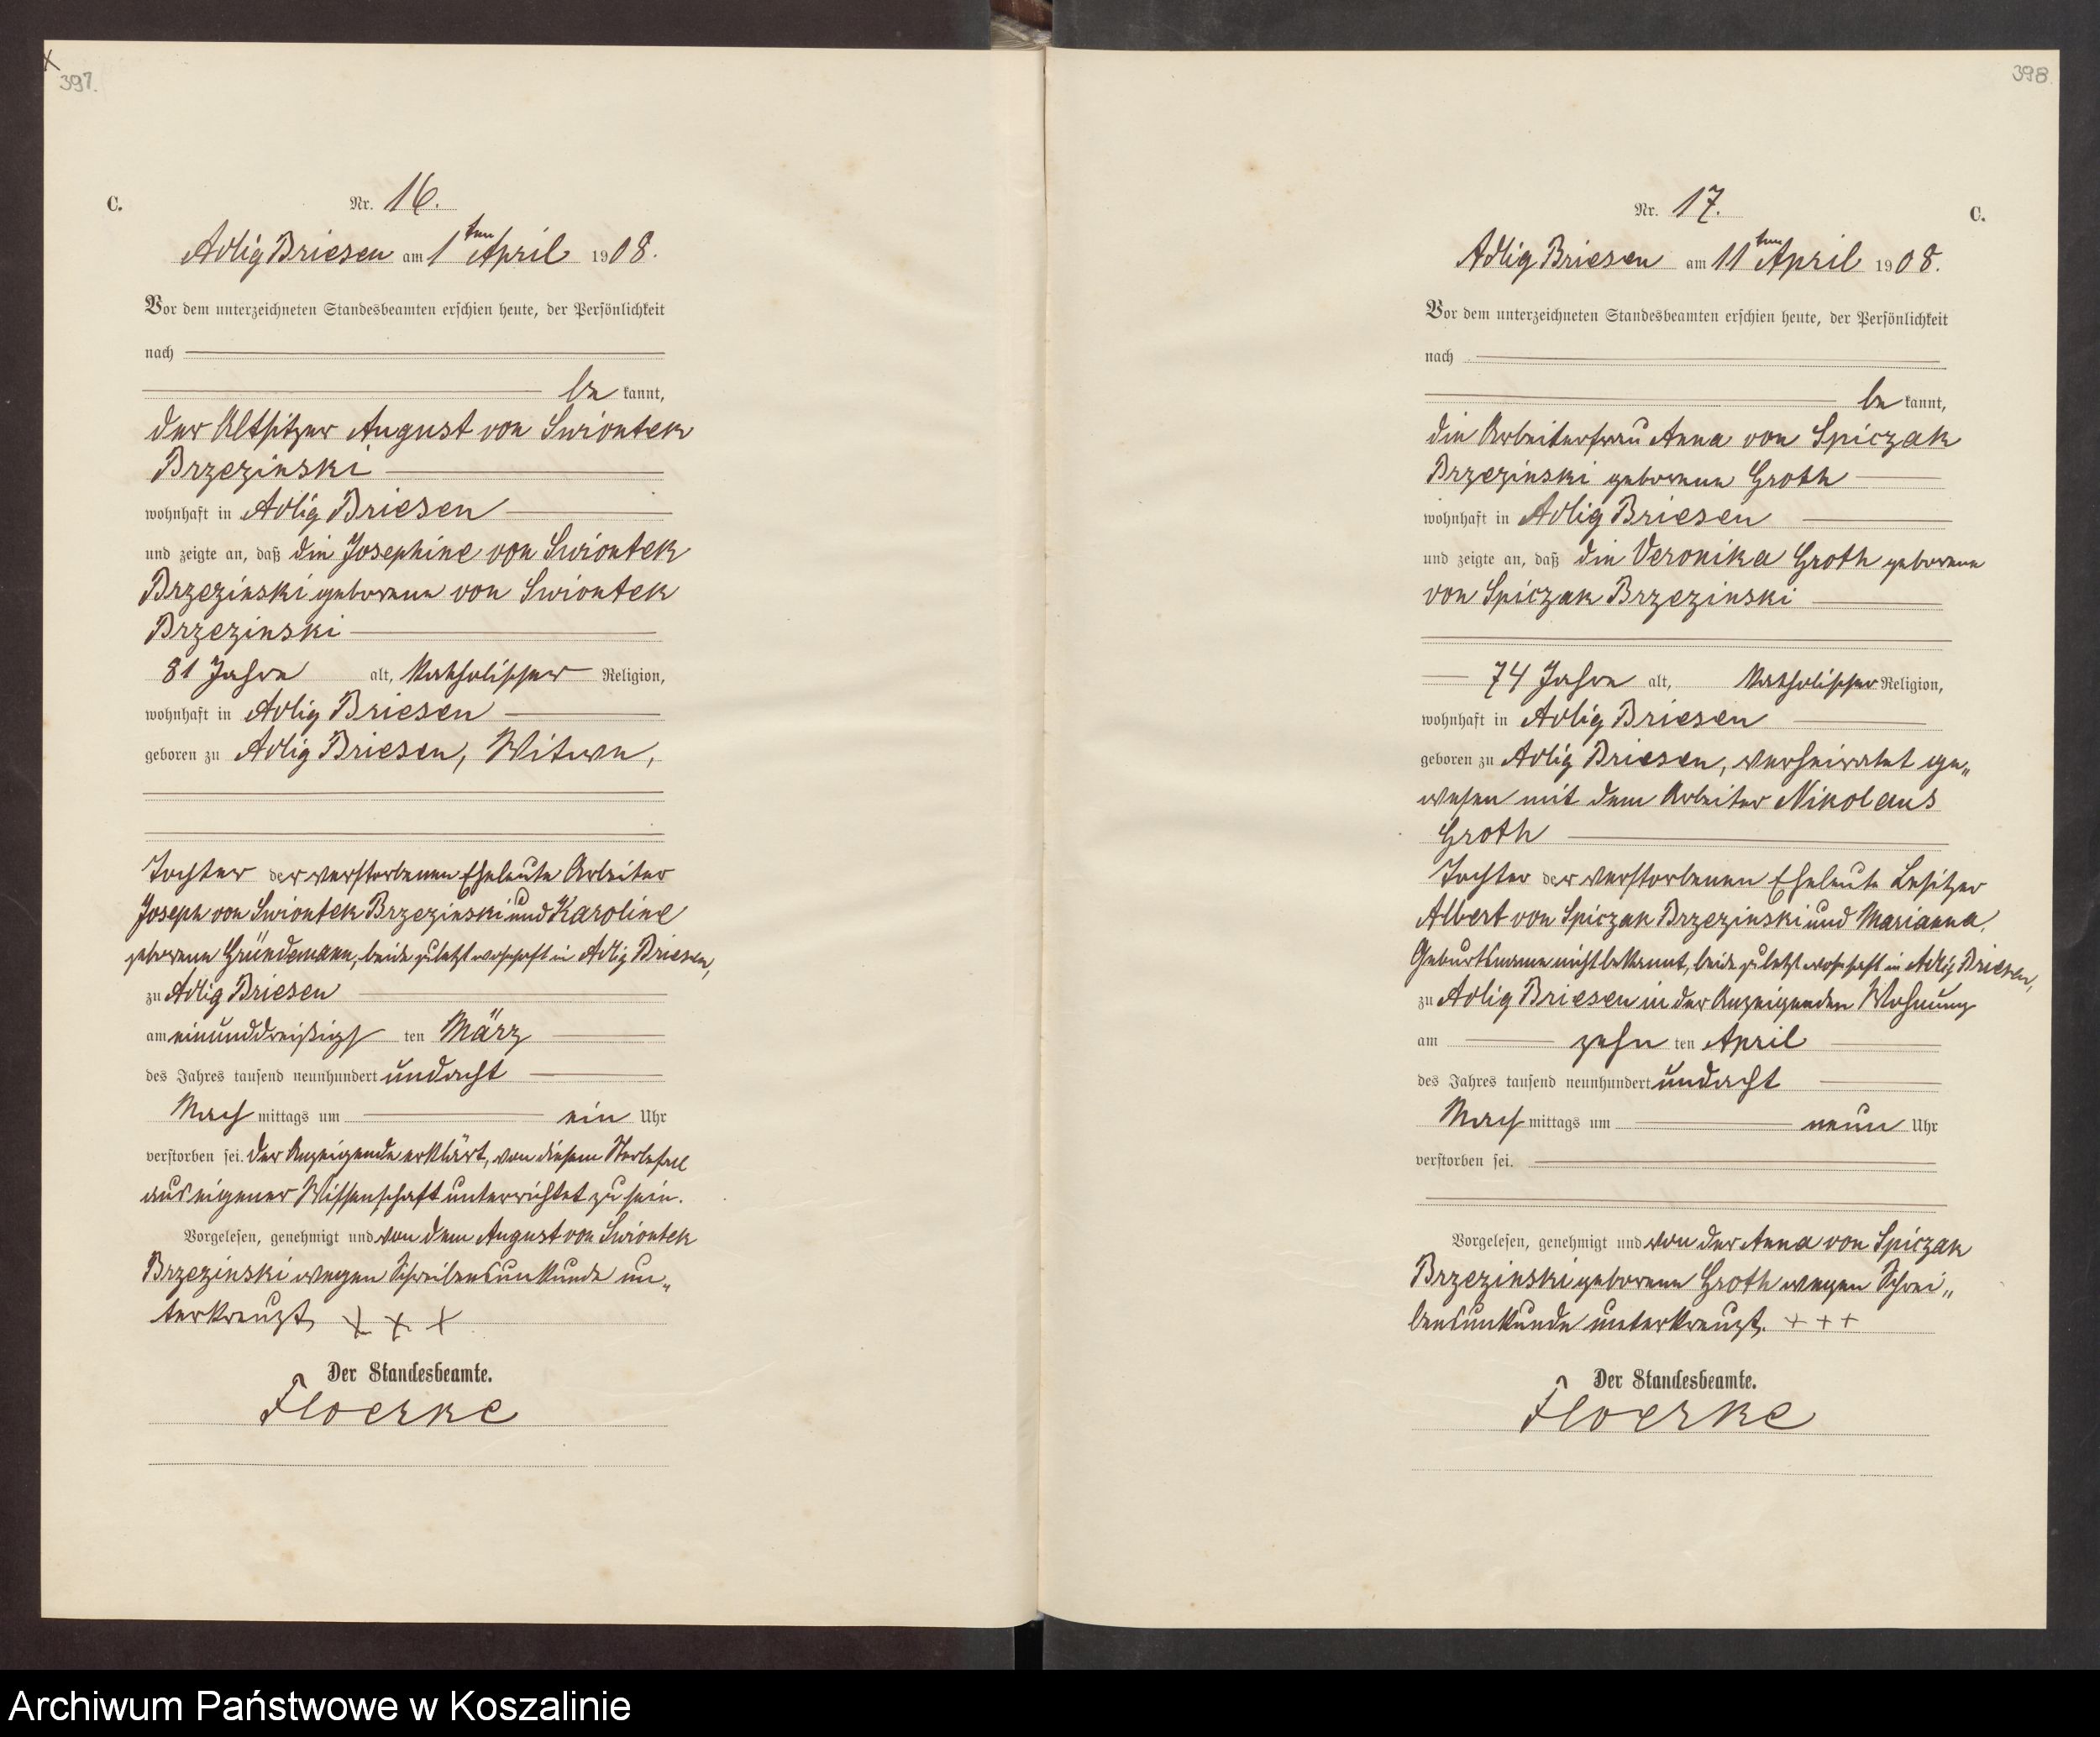 397.
C.
Nr. 16.
Adlig Briesen am 1ten April 1908.
Vor dem unterzeichneten Standesbeamten erschien heute, der Persönlichkeit
nach
be kannt,
der Altsitzer August von Swiontek
Brzezinski
wohnhaft in Adlig Briesen
und zeigte an, daß die Josephine von Swiontek
Brzezinski geborene von Swiontek
Brzezinski
81 Jahre alt, katholischer Religion,
wohnhaft in Adlig Briesen
geboren zu Adlig Briesen, Witwe,
Tochter der verstorbenen Eheleute Arbeiter
Joseph von Swiontek Brzezinski und Karoline
geborene Gründemann, beide zuletzt wohnhaft in Adlig Briesen,
zu Adlig Briesen
am einunddreißigs ten März
des Jahres tausend neunhundert undacht
Nach mittags um ein Uhr
verstorben sei. Der Anzeigende erklärt, von diesem Sterbefall
aus eigener Wissenschaft unterrichtet zu sein.
Vorgelesen, genehmigt und von dem August von Swiontek
Brzezinski wegen Schreibensunkunde un„
terkreuzt. + + +
Der Standesbeamte.
Floerke
398
Nr. 17.
C.
Adlig Briesen am 11ten April 1908.
Vor dem unterzeichneten Standesbeamten erschien heute, der Persönlichkeit
nach
be kannt,
die Arbeiterfrau Anna von Spiczak
Brzezinski geborene Groth
wohnhaft in Adlig Briesen
und zeigte an, daß die Veronika Groth geborene
von Spiczak Brzezinski
74 Jahre alt, katholischer Religion,
wohnhaft in Adlig Briesen
geboren zu Adlig Briesen, verheiratet ge„
wesen mit dem Arbeiter Nikolaus
Groth
Tochter der verstorbenen Eheleute Besitzer
Albert von Spiczak Brzezinski und Marianna,
Geburtsname nicht bekannt, beide zuletzt wohnhaft in Adlig Briesen,
zu Adlig Briesen in der Anzeigenden Wohnung
am zehn ten April
des Jahres tausend neunhundert undacht
Nach mittags um neun Uhr
verstorben sei.
Vorgelesen, genehmigt und von der Anna von Spiczak
Brzezinski geborene Groth wegen Schrei„
bensunkunde unterkreuzt. + + +
Der Standesbeamte.
Floerke
Archiwum Państwowe w Koszalinie